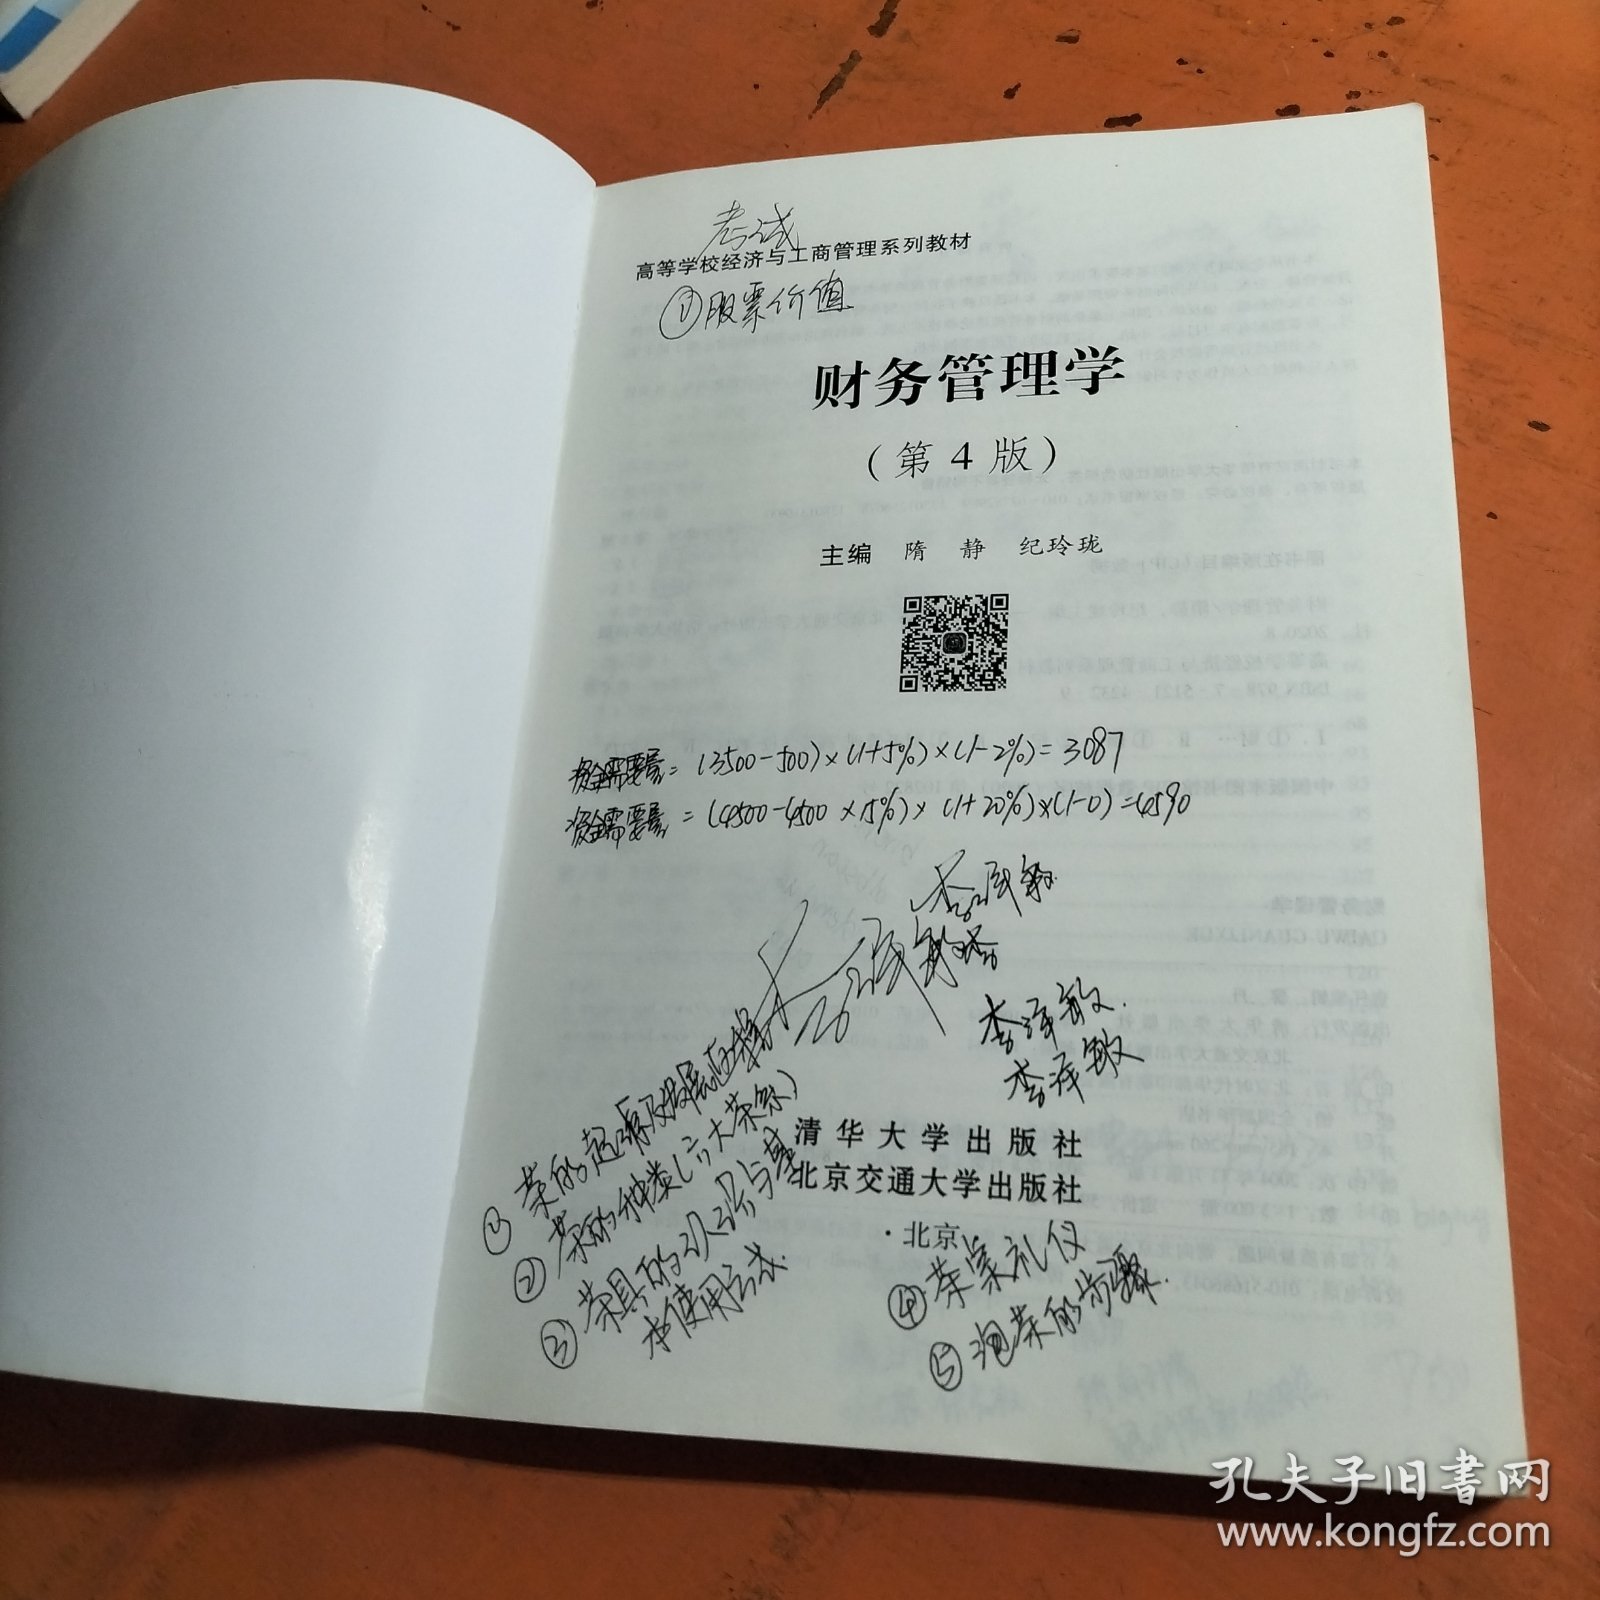 考试
高等学校经济与工商管理系列教材
①股票价值
财务管理学
（第 4 版）
主编 隋 静 纪玲珑
资金需要量=(3500-500)×(1+5%)×(1-2%)=3087
资金需要量=(4500-4500×15%)×(1+20%)×(1-0)=4590
李泽敏
李泽敏
李泽敏
清华大学出版社
北京交通大学出版社
·北京·
①茶的起源及发展
②茶的种类(六大茶系)
③茶具的认识与基
本使用方式.
④茶桌礼仪
⑤泡茶的步骤.
孔夫子旧书网
www.kongfz.com